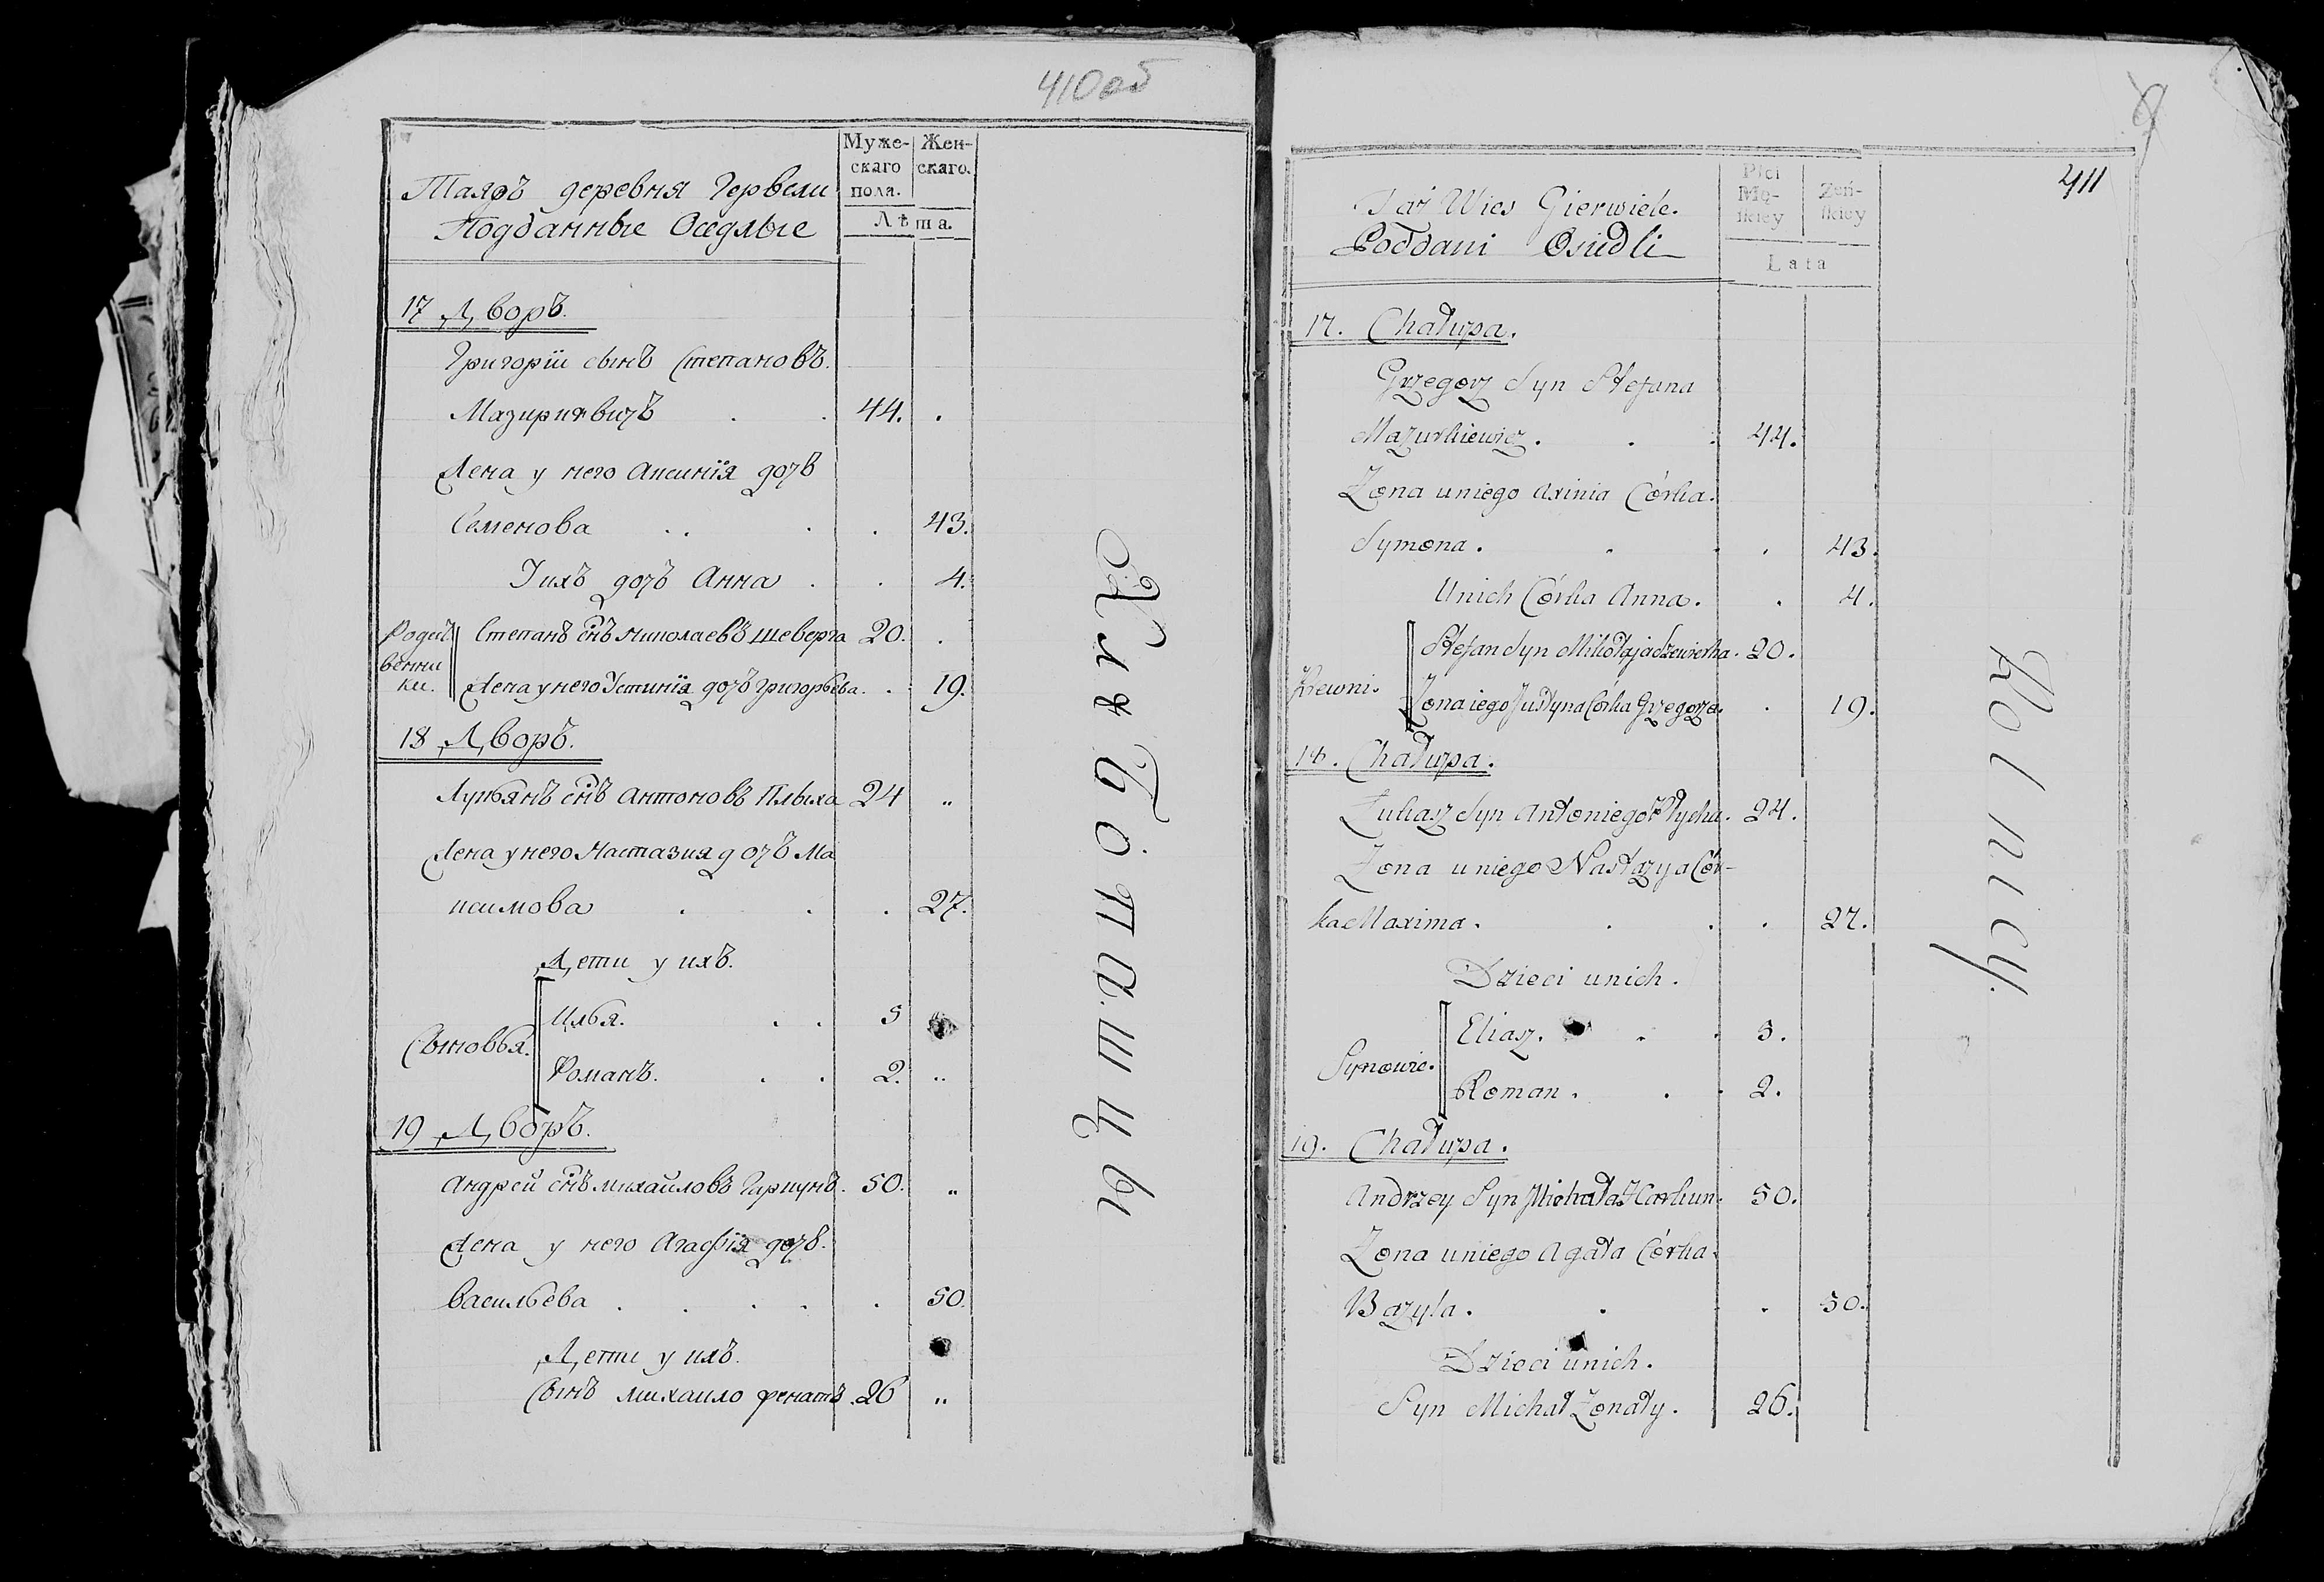 410 об
Муже-
скаго
пола.
Жен-
скаго.
Лѣта.
Таяжъ деревня Гервели
Подданные Оседлые
17 Дворъ.
Григорій сынъ Степановъ
Мазуркевичъ . . 44. .
Жена у него Аксинія дочъ
Семенова . . . . 43.
У ихъ дочъ Анна . . 4.
Родст
венни
ки.
Степанъ снъ Николаевъ Шеверга 20. .
Жена у него Устинія дочъ Григорьева . . 19.
18 Дворъ.
Лукьянъ снъ Антоновъ Плыха 24 „
Жена у него Настазия дочъ Ма
ксимова . . . 27.
Дети у ихъ.
Сыновья.
Илья. . . 5
Романъ. . . 2. „
19 Дворъ.
Андрей снъ Михайловъ Гаркунъ . 50. „
Жена у него Агафія дочъ.
Васильева . . . . . 50.
Дети у ихъ.
Сынъ Михаило женатъ . 26 „
Хлѣбопашцы
411
Płci
Mę-
skiey
Zeń-
skiey
Lata
Taż Wies Gierwiele.
Poddani Osiedli
17. Chałupa.
Grzegorz Syn Stefana
Mazurkiewicz . . . 44.
Zona uniego Axinia Córka.
Symona . . . . 43.
Unich Córka Anna . . 4.
Krewni.
Stefan Syn Mikołaja Szewerha . 20.
Żona iego Justyna Córka Grzegorza . . 19.
18. Chałupa.
Łukasz Syn Antoniego Płycha . 24.
Zona uniego Nastazya Cór-
ka Maxima . . . . 27.
Dzieci unich.
Synowie.
Eliasz . . . 5.
Roman . . . 2.
19. Chałupa.
Andrzey Syn Michała Harkun . 50.
Zona uniego Agata Córka
Bazyla . . . 50.
Dzieci unich.
Syn Michał Żonaty . 26.
Rolnicy.